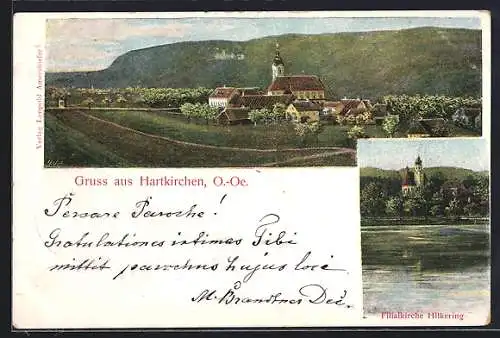 Verlag Leopold
Gruss aus Hartkirchen, O.-Oe.
Persare Paroche!
Gratulationes intimas Tibi
mittit parochus hujus loci
M. Brandtner Dec.
Filialkirche Hilkering